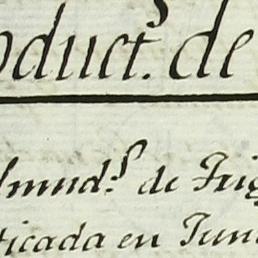 oduct.ˢ de
lmud.ˢ de Trig
ticada en Juni